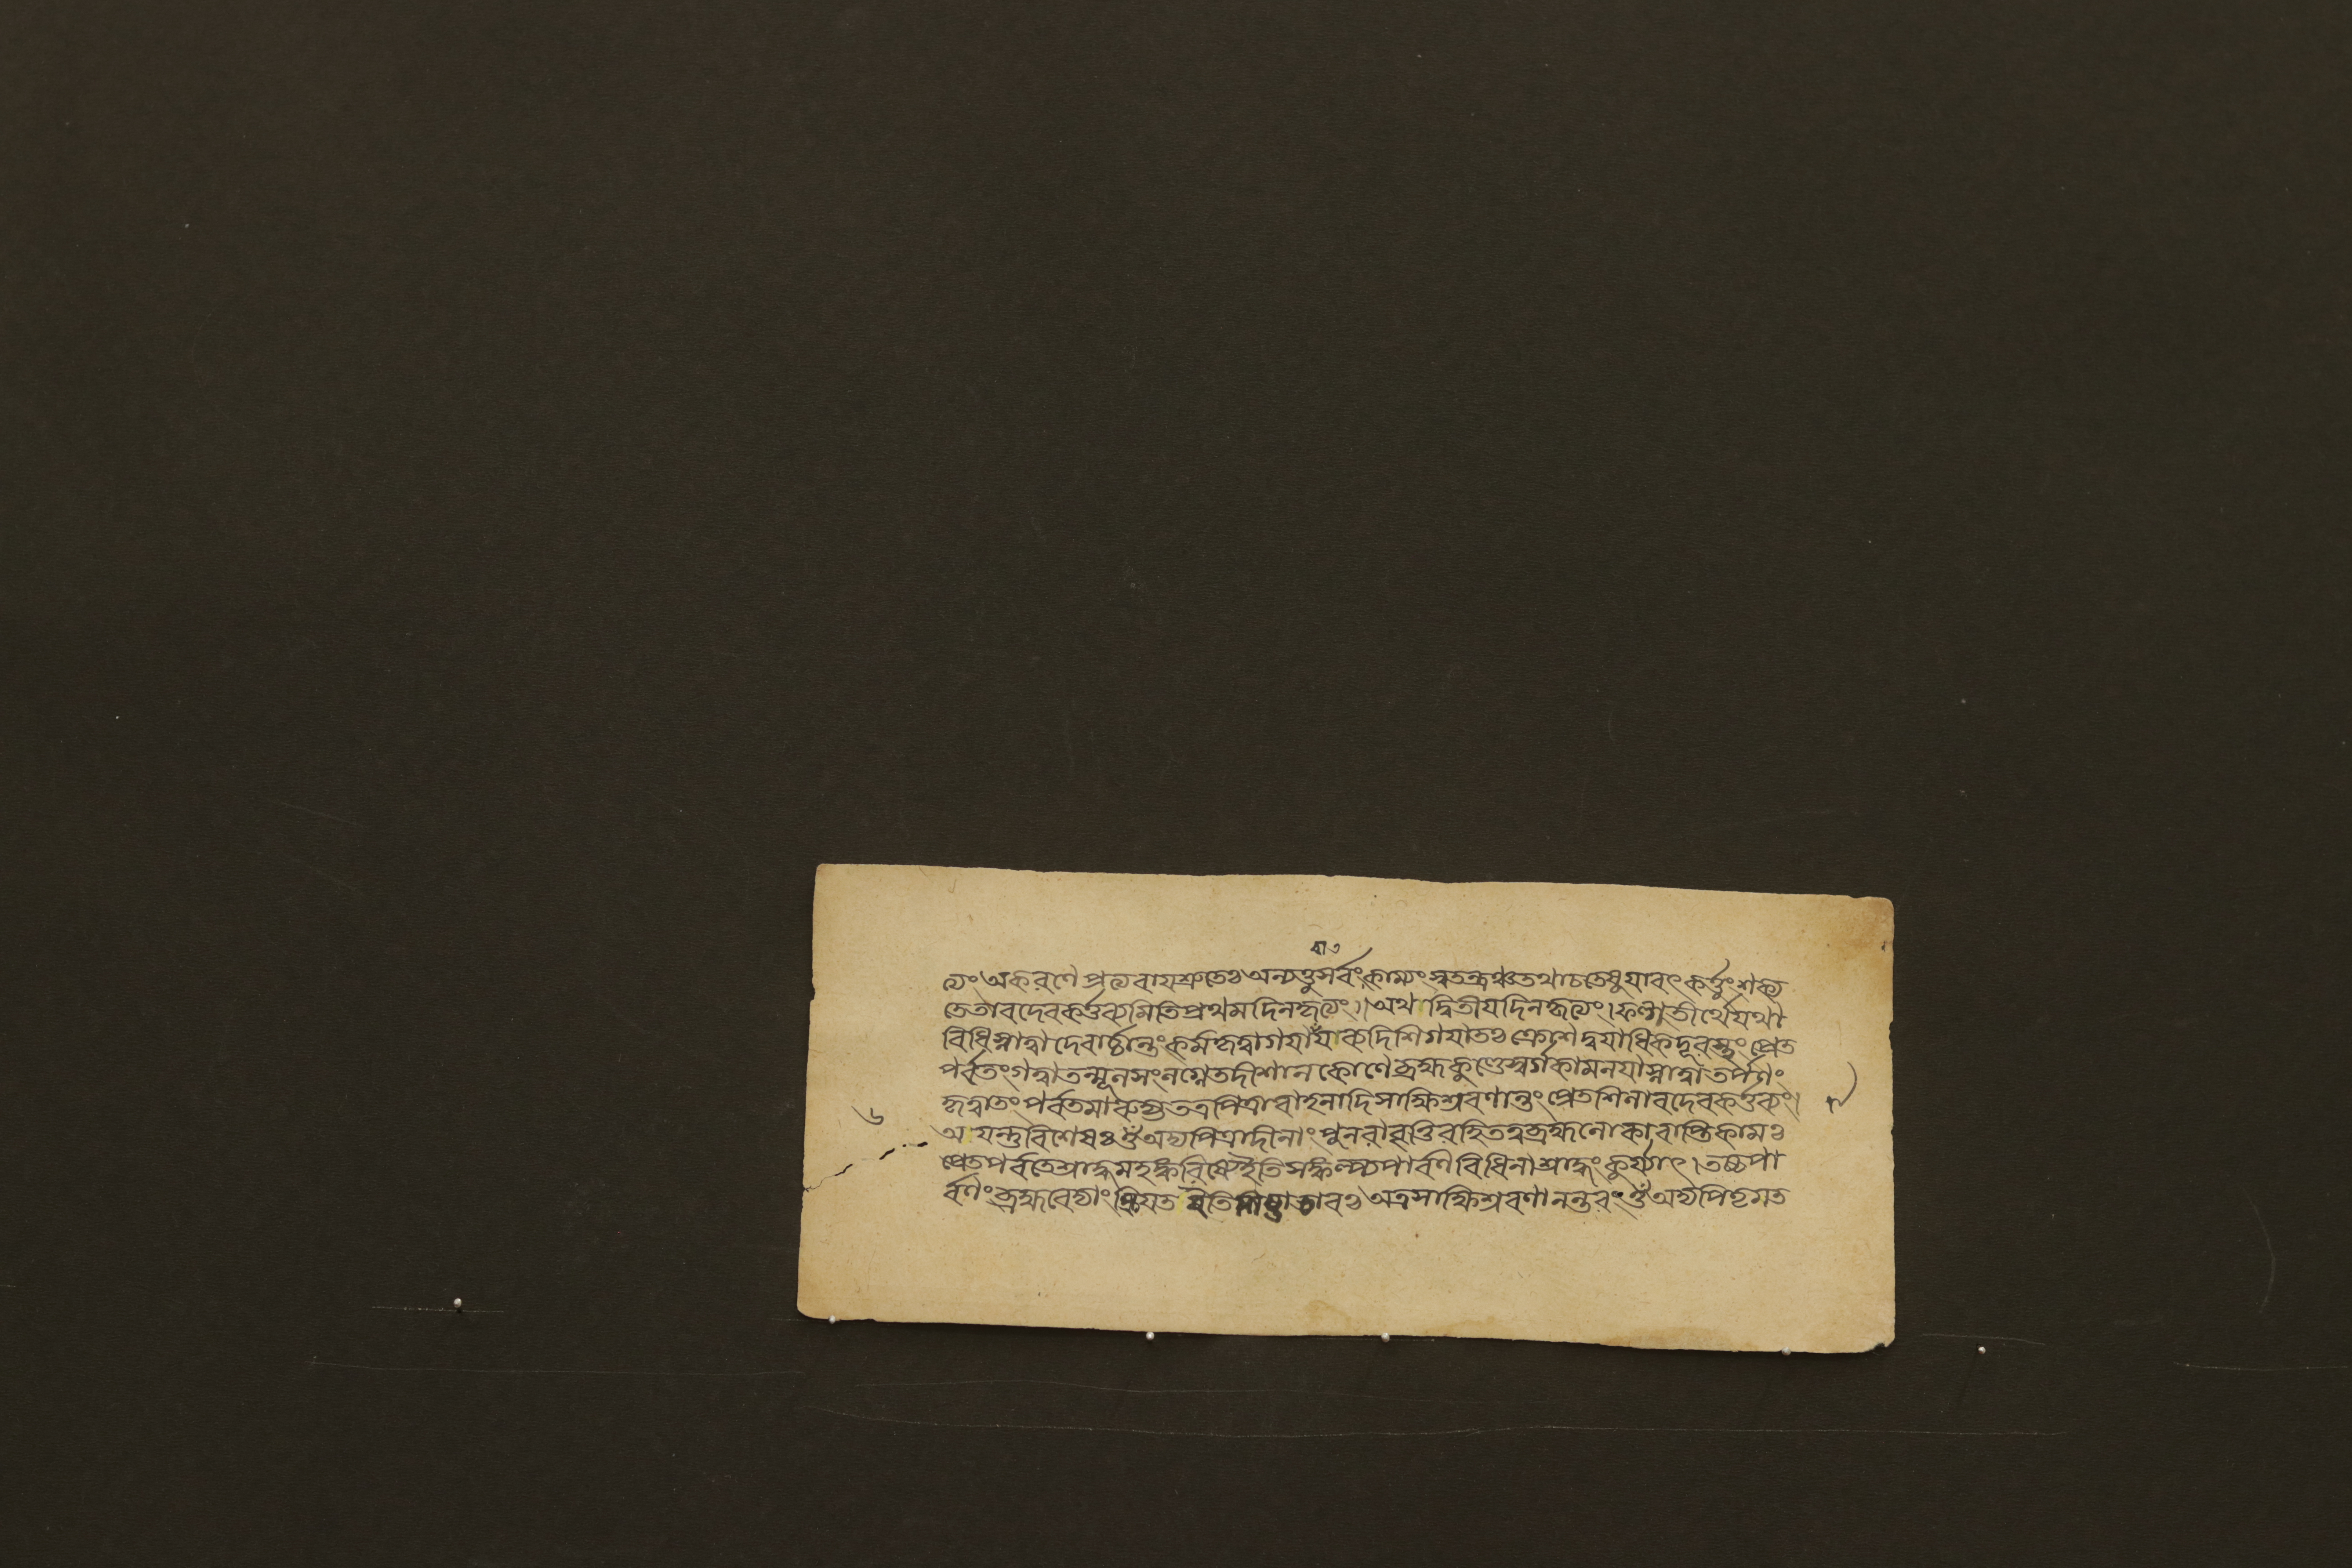 ত্যং অকরণে প্রত্যবায়শ্রুতেঃ অন্যত্তু সর্বং কাম্যং স্বতন্ত্রঞ্চ তথাচ তেষু যাবৎ কর্ত্তুং শক্য
তে তাবদেব কর্ত্তব্যমিতি প্রথমদিনকৃত্যং।। অথ দ্বিতীয়দিনকৃত্যং। ফল্গুতীর্থে যথা
বিধি স্নাত্বা দেবার্চ্চান্তং কর্ম কৃত্বা গয়া বায়ব্যদিশি গয়াতঃ ক্রোশদ্বয়াধিকদূরস্থং প্রেত
পর্বতং গত্বা তন্মূলসংলগ্নে তদীশানকোণে ব্রহ্মকুণ্ডে স্বর্গকামনয়া স্নাত্বা তর্পণং
কৃত্বা তং পর্বতমারুহ্য তত্র পিত্রাবাহনাদি সাক্ষিশ্রবণান্তং প্রেতশিলাবদেব কর্ত্তব্যং।
৬
অয়ন্তু বিশেষঃ ওঁ অদ্য পিত্রাদীনাং পুনরাবৃত্তিরহিতত্ব ব্রহ্মলোকাবাপ্তিকামঃ
প্রেতপর্বতে শ্রাদ্ধমহঙ্করিষ্যে ইতি সঙ্কল্প্য পার্বণবিধিনা শ্রাদ্ধং কুর্য্যাৎ। তচ্চ পা
র্বণং ব্রহ্মবেদ্যাং ক্রিয়ত ইতি অত্র সাক্ষিশ্রবণানন্তরং ওঁ অদ্য পিতৃমত